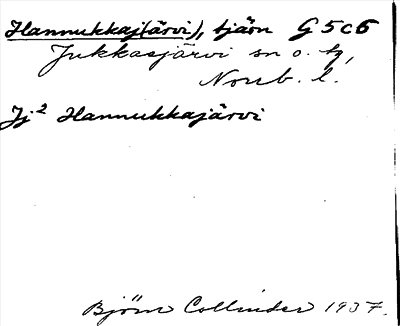 Hannukkaj(ärvi), tjärn G5c6
Jukkasjärvi sn o. tg,
Norrb. l.
Jj² Hannukkajärvi
Björn Collinder 1937.